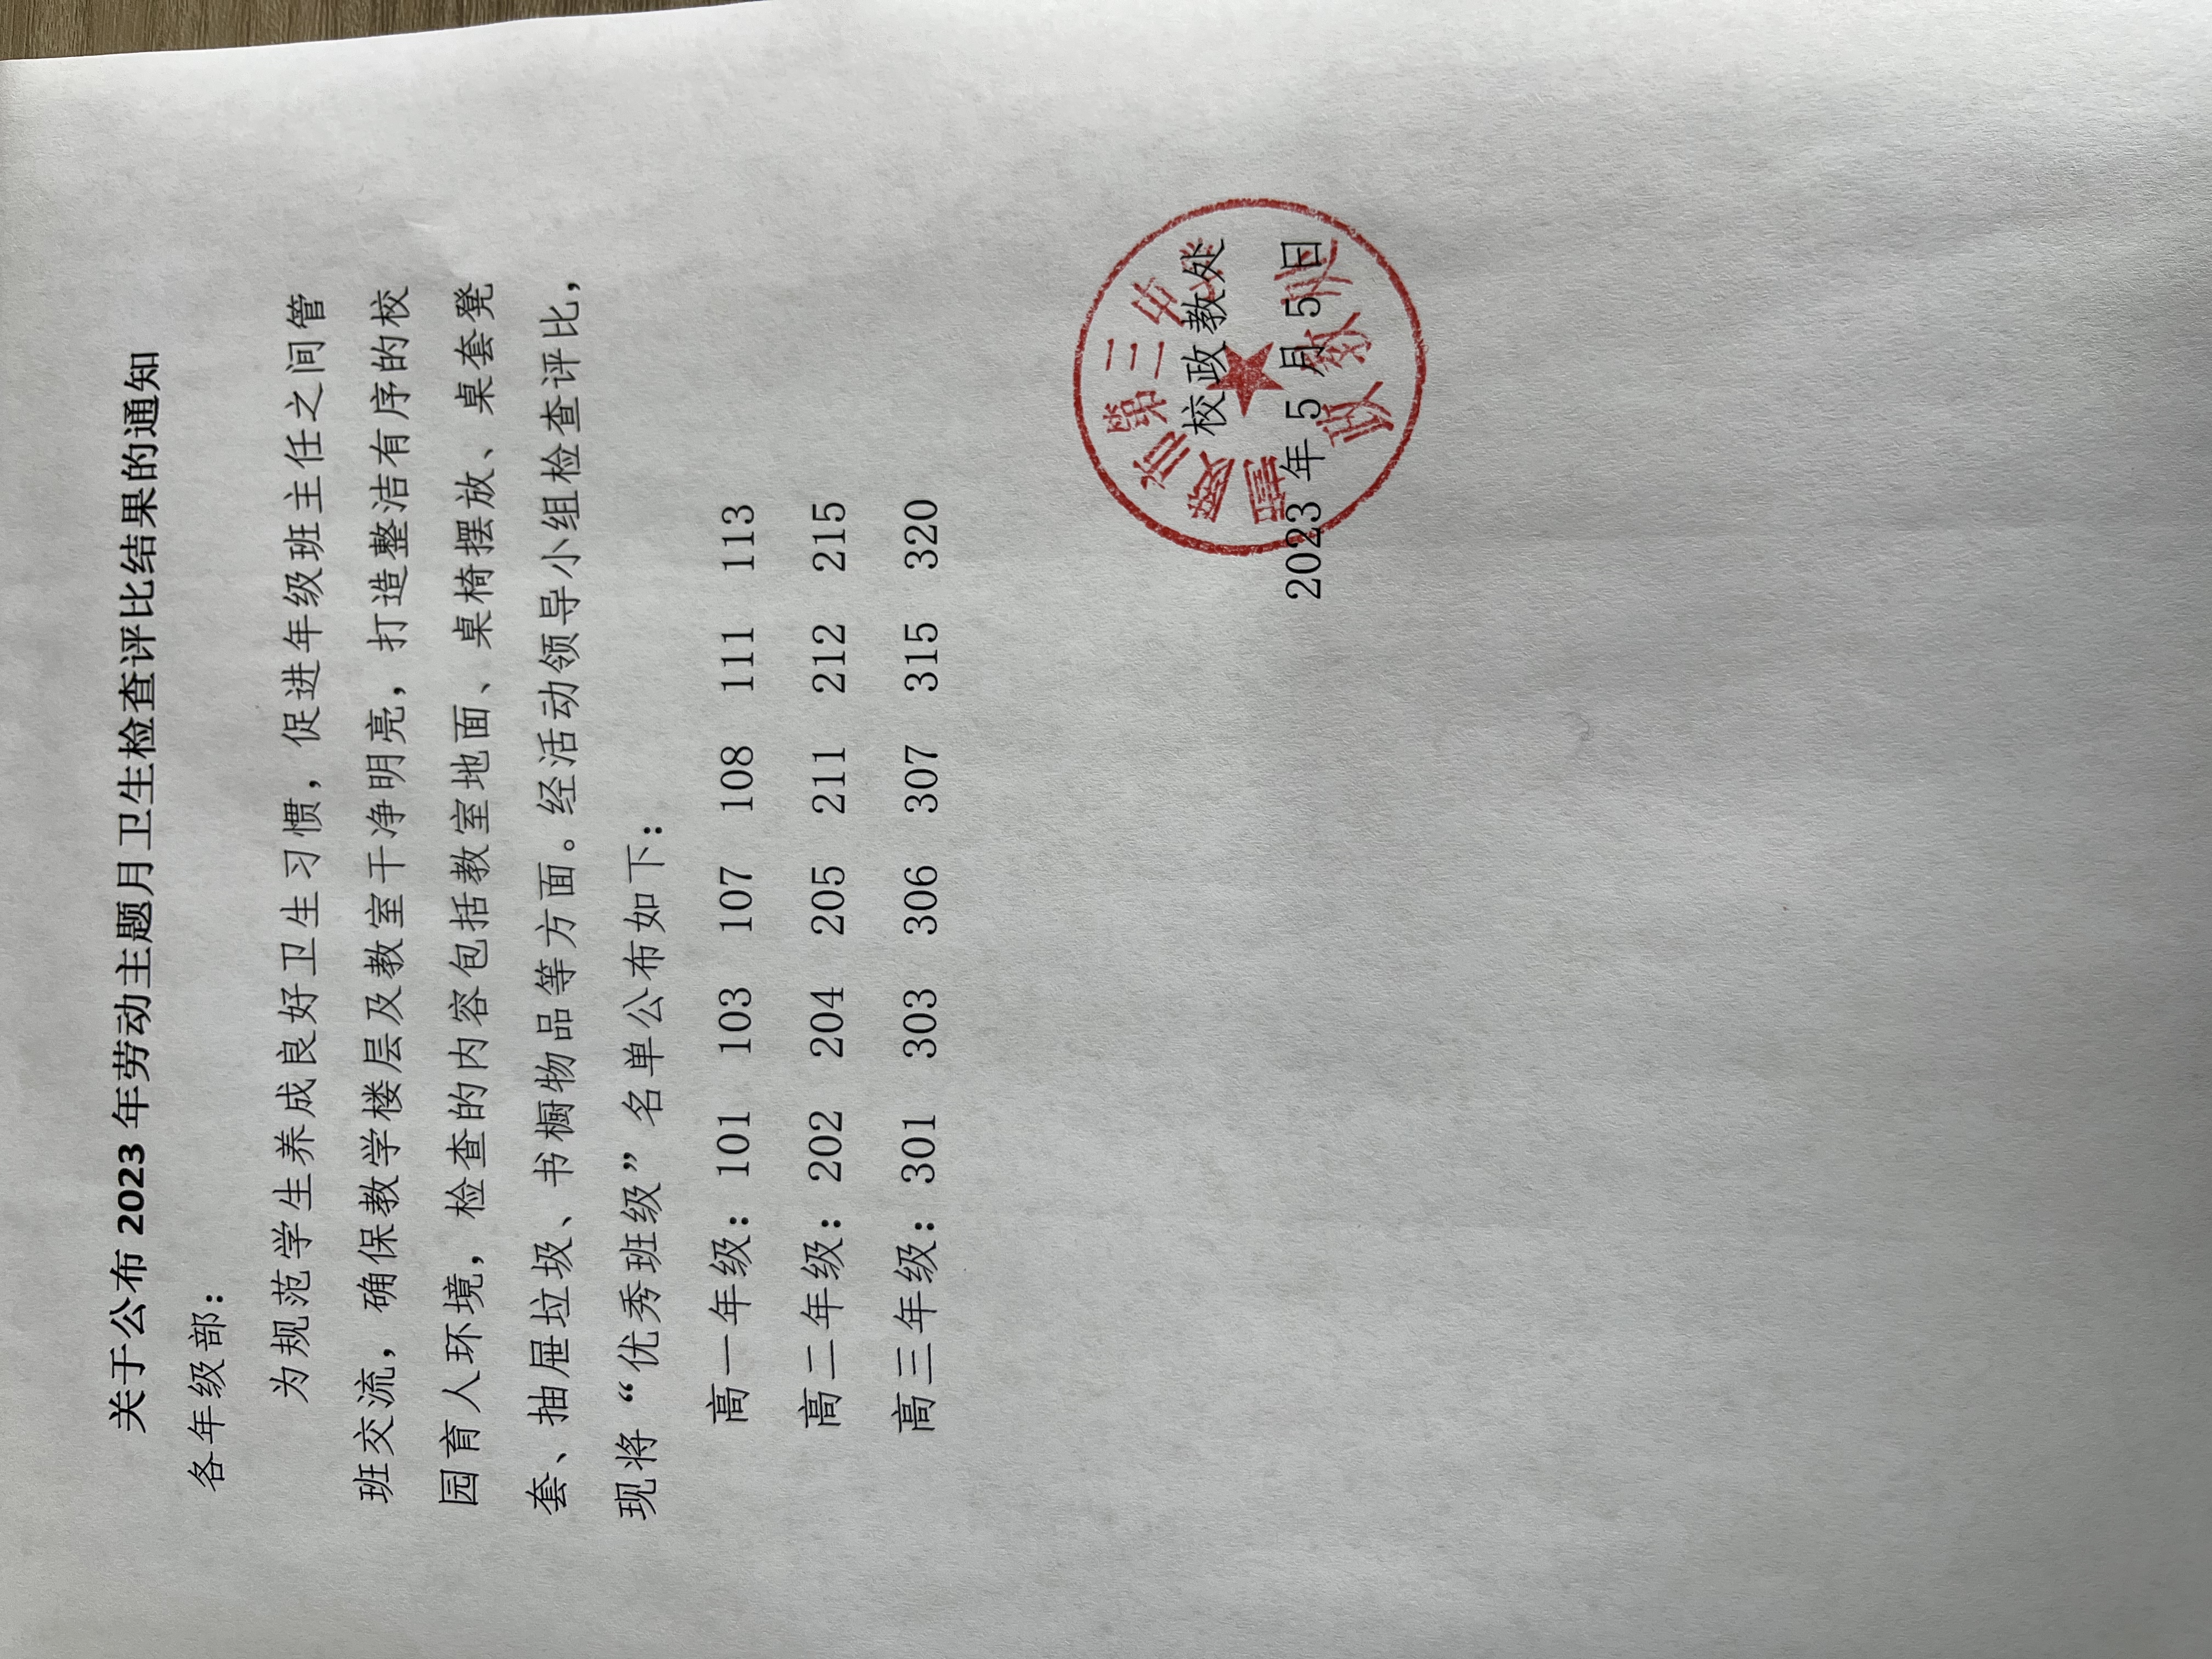 关于公布 2023 年劳动主题月卫生检查评比结果的通知
各年级部：
为规范学生养成良好卫生习惯，促进年级班主任之间管
班交流，确保教学楼层及教室干净明亮，打造整洁有序的校
园育人环境，检查的内容包括教室地面、桌椅摆放、桌套凳
套、抽屉垃圾、书橱物品等方面。经活动领导小组检查评比，
现将“优秀班级”名单公布如下：
高一年级：101 103 107 108 111 113
高二年级：202 204 205 211 212 215
高三年级：301 303 306 307 315 320
校政教处
2023 年 5 月 5 日
市第三中学
政教处